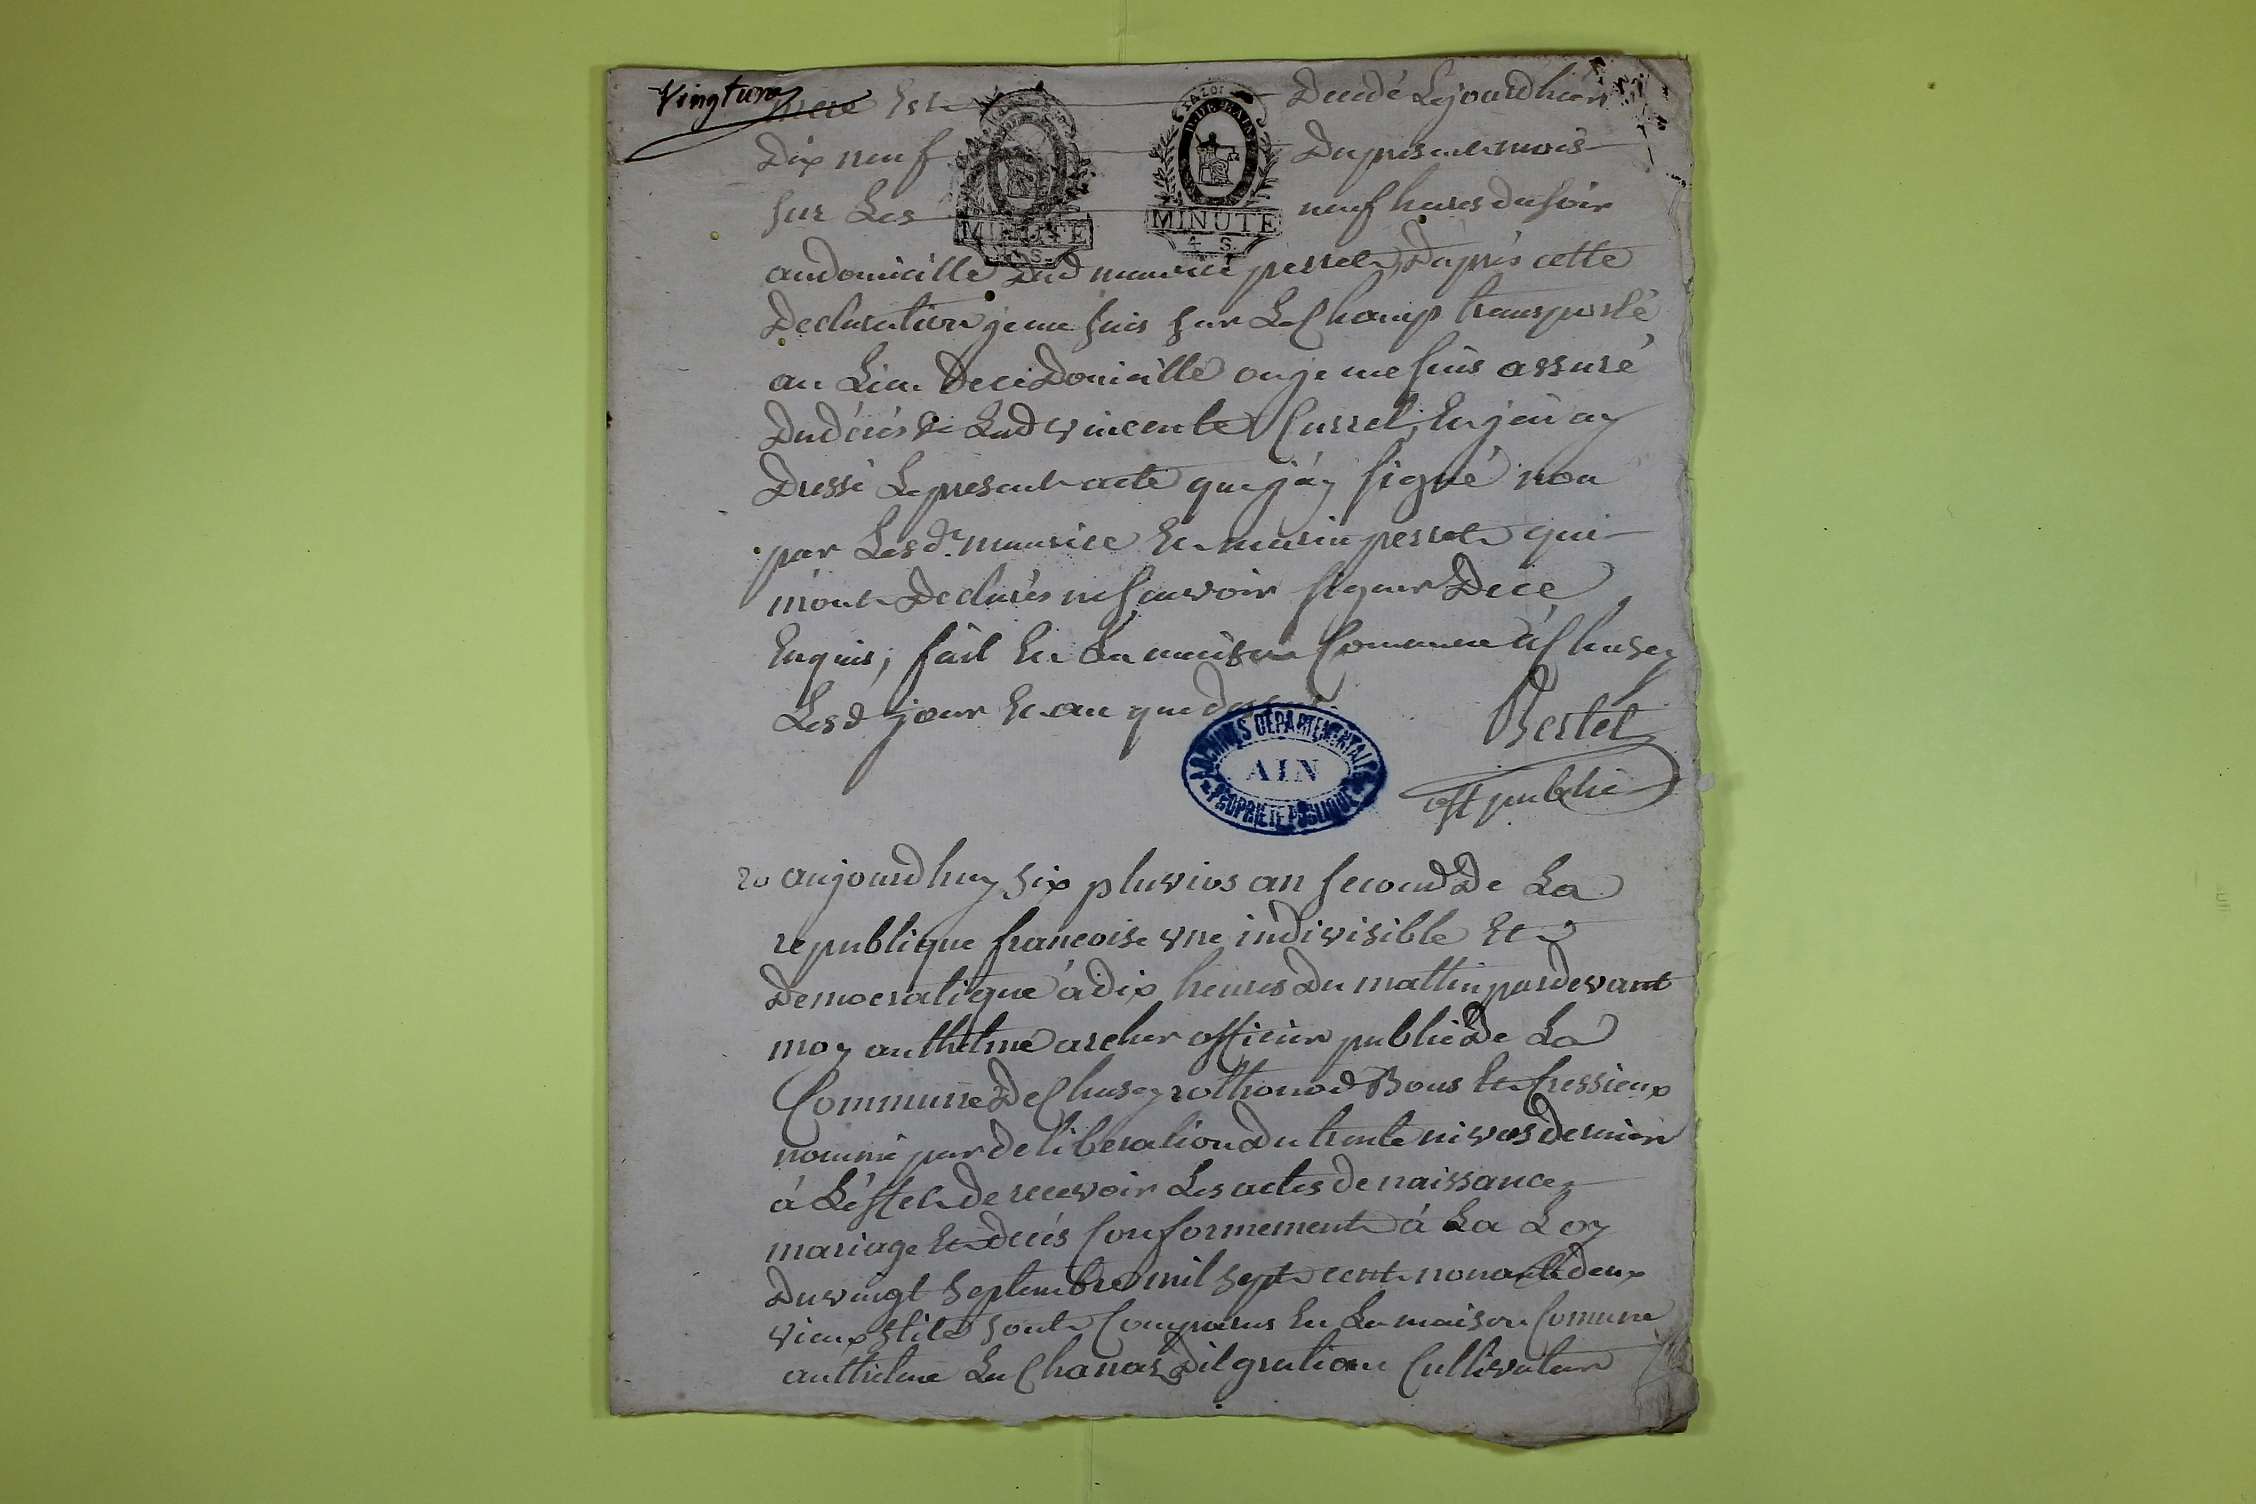 vingtune
mere est decedé le jourd huier
dix neuf du present mois
sur les neuf heures du soir
MINUTE
4. S.
MINUTE
4. S.
au domicille dud maurice perret, d'aprés cette
declaration je me suis sur le champ transporté
au lieu de ce domicille ou je me suis assuré
du décés de lad vincente Curret, et j'en ay
dressé le present acte que j'ay signé non
par lesd. maurice et marin perret qui
m'ont declarés ne sçavoir signer de ce
enquis, fait en la maison Commune à Chasey
lesd jour et an que dessus
Bertet
off public
ARCHIVES DÉPARTEMENTALES
AIN
PROPRIÉTÉ PUBLIQUE
20 aujourdhuy six pluvios an second de la
republique francoise vne indivisible et
democratique à dix heures du mattin pardevant
moy anthelme archer officier public de la
Commune de Chasey rothonod Bons et Cressieux
nommé par deliberation du trente nivos dernier
à l'effet de recevoir les actes de naissances
mariage et décés Conformement à la Loy
du vingt septembre mil sept cent nonante deux
vieux stile sont Comparus en la maison Comune
anthelme La Chanas dit gration Cultivateur